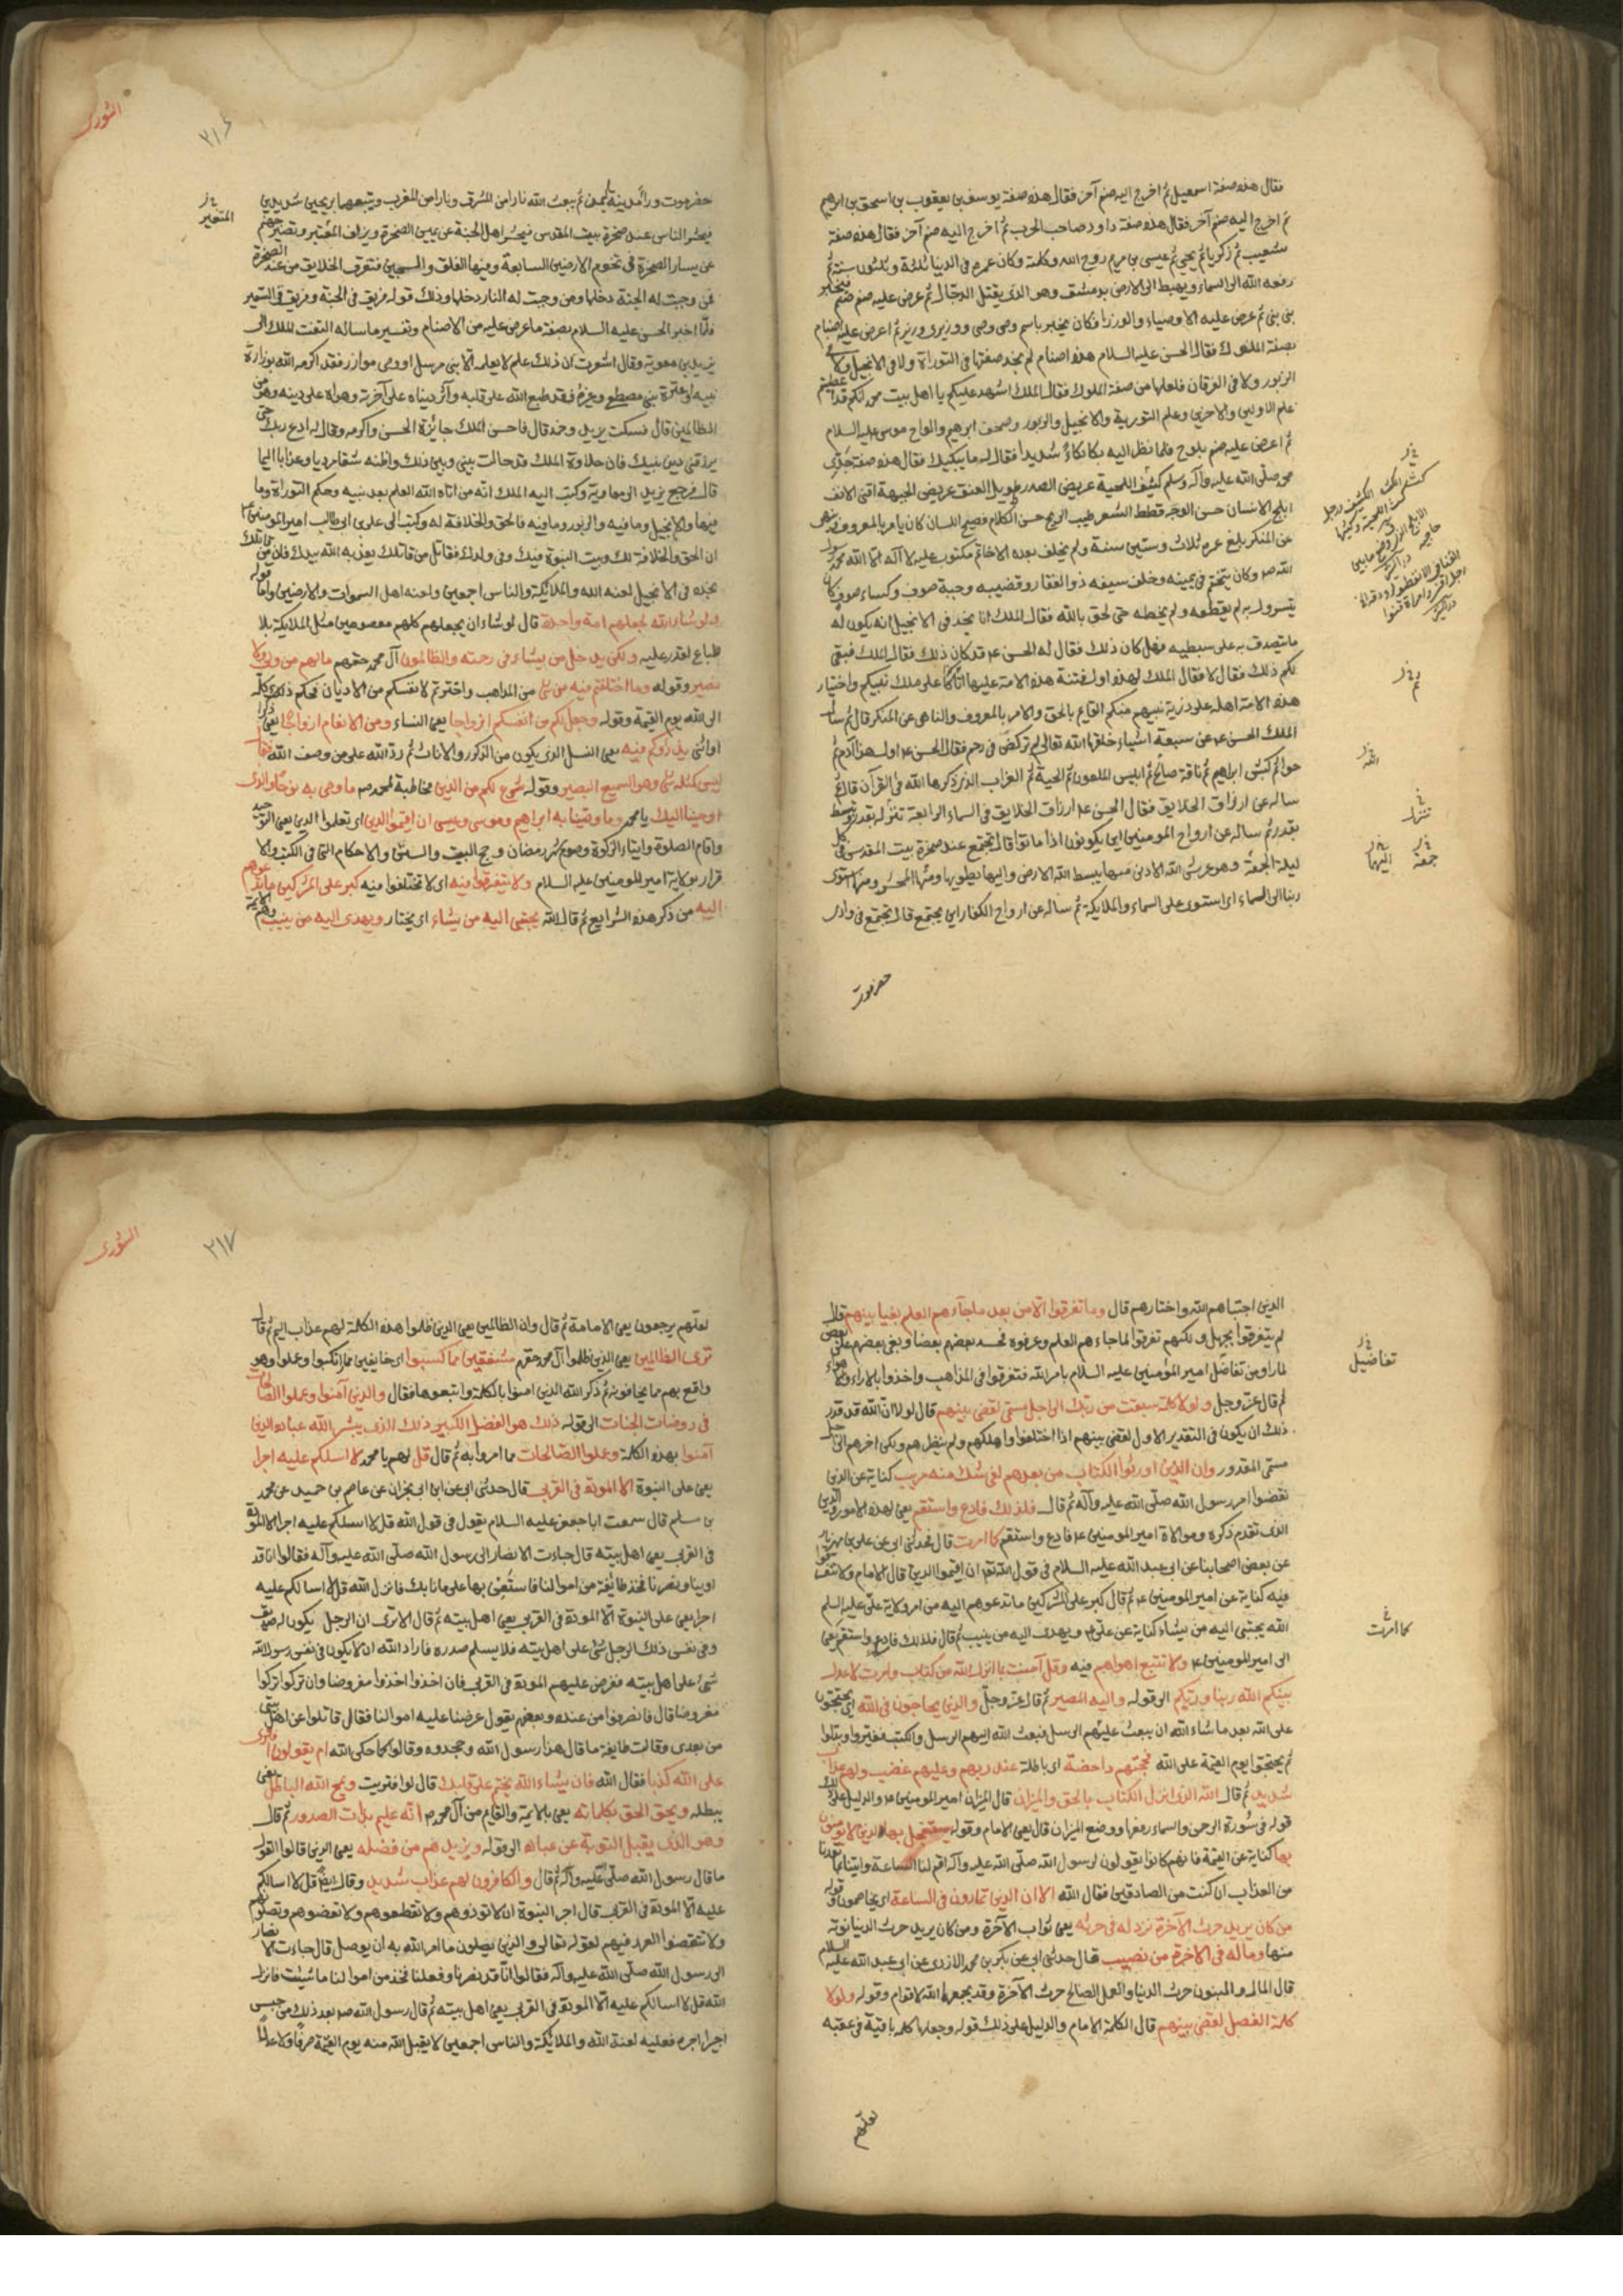 فقال هذه صفة اسمعيل ثم اخرج اليه صنم آخر فقال هذه صفة يوسف بن يعقوب بن اسحق بن ابرهيم
ثم اخرج اليه صنم آخر فقال هذه صفة داود صاحب الحرب ثم اخرج اليه صنم آخر فقال هذه صفة
شعيب ثم زكريا ثم يحيى ثم عيسى بن مريم روح الله وكلمته وكان عمره في الدنيا ثلثة وثلثون سنة ثم
رفعه الله الى السماء ويهبط الى الارض بدمشق وهو الذي يقتل الدجال ثم عرض عليه صنم صنم فيخبر
بني بني ثم عرض عليه الاوصياء والوزرا فكان يخبر باسم وصي وصي ووزير ووزير ثم اعرض عليه اصنام
بصفة الملوك فقال الحسن عليه السلام هذه اصنام لم نجد صفتها في التوراة ولا في الانجيل ولا في
الزبور ولا في الفرقان فلعلها من صفة الملوك فقال الملك اشهد عليكم يا اهل بيت محمد انكم قد اعطيتم
علم الاولين والاخرين وعلم التورية والانجيل والزبور وصحف ابرهيم والواح موسى عليه السلام
ثم اعرض عليه صنم يلوح فلما نظر اليه بكا بكاءً شديداً فقال له ما يبكيك فقال هذه صفة جدي
محمد صلى الله عليه وآله وسلم كثيف اللحية عريض الصدر طويل العنق عريض الجبهة اقنى الانف
ابلج الاسنان حسن الوجه قطط الشعر طيب الريح حسن الكلام فصيح اللسان كان يامر بالمعروف وينهى
عن المنكر بلغ عمره ثلاث وستين سنة ولم يخلف بعده الا خاتم مكتوب عليه لا اله الا الله محمد رسول
الله صم وكان يتختم في يمينه وخلف سيفه ذو الفقار وقضيبه وجبة صوف وكساء صوف كان
يتسرول به لم يقطعه ولم يخطه حتى لحق بالله فقال الملك انا نجد في الانجيل انه يكون له
ما يتصدق به على سبطيه فهل كان ذلك فقال له الحسن ع م قد كان ذلك فقال الملك فبقي
لكم ذلك فقال لا فقال الملك لهذه اول فتنة هذه الامة عليها اباكما على ملك نبيكم واختيار
هذه الامة اهله على ذرية نبيهم منكم القايم بالحق والامر بالمعروف والناهي عن المنكر قال ثم سأل
الملك الحسن ع م عن سبعة اشياء خلقها الله تعالى لم تركض في رحم فقال الحسن ع م اول هذا آدم ثم
حوا ثم كبش ابراهيم ثم ناقة صالح ثم ابليس الملعون ثم الحية ثم الغراب الذي ذكرها الله في القرآن قال ثم
ساله عن ارزاق الخلايق فقال الحسن ع م ارزاق الخلايق في السماء الرابعة تنزل بقدر وتبسط
بقدر ثم ساله عن ارواح المومنين اين يكونون اذا ماتوا قال تجتمع عند صخرة بيت المقدس في كل
ليلة الجمعة وهو عرش الله الادنى منها يبسط الله الارض واليها يطويها ومنها المحشر ومنها استوى
ربنا الى السماء اى استولى على السماء والملايكة ثم ساله عن ارواح الكفار اين يجتمع قال تجتمع في وادي
ثم
الله
تنزل
جمعة
اليها
حضرموت
الشورى
٢١٦
حضرموت وراء مدينة اليمن ثم يبعث الله نارا من المشرق ونارا من المغرب ويتبعهما بريحين شديدين
المتغير
فيحشر الناس عند صخرة بيت المقدس فيحشر اهل الجنة عن يمين الصخرة ويزلف المعتبر وتصير جهنم
عن يسار الصخرة في تخوم الارضين السابعة وفيها الفلق والسجين فتفرق الخلايق من عند الصخرة
فمن وجبت له الجنة دخلها ومن وجبت له النار دخلها وذلك قوله فريق في الجنة وفريق في السعير
فلما اخبر الحسن عليه السلام بصفة ما عرض عليه من الاصنام وتفسير ما ساله التفت الملك الى
يزيد بن معوية وقال اشعرت ان ذلك علم لا يعلمه الا نبي مرسل او وصي موازر فقد اكرمه الله بوزارة
نبيه او عترة نبي مصطفى وغيره فقد طبع الله على قلبه وآثر دنياه على آخرته وهواه على دينه وهو من
الظالمين قال فسكت يزيد وخمد قال فاحسن الملك جائزة الحسن واكرمه وقال له ادع ربك حتى
يرزقني دين نبيك فان حلاوة الملك قد حالت بيني وبين ذلك واظنه شقا مرديا وعذابا اليما
قال فرجع يزيد الى معاوية وكتب اليه الملك انه من اتاه الله العلم بعد نبيه وحكم التوراة وما
فيها والانجيل وما فيه والزبور وما فيه فالحق والخلافة له وكتب الى علي بن ابي طالب امير المومنين ع م
ان الحق والخلافة لك وبيت النبوة فيك وفي ولدك فقاتل من قاتلك يعذبه الله بيدك فان من قاتلك
نجده في الانجيل لعنه الله والملائكة والناس اجمعين ولعنه اهل السموات والارضين واما قوله
ولو شاء الله لجعلهم امة واحدة قال لو شاء ان يجعلهم كلهم معصومين مثل الملايكة بلا
طباع لقدر عليه ولكن يدخل من يشاء في رحمته والظالمون آل محمد حقهم ما لهم من ولي ولا
نصير وقوله وما اختلفتم فيه من شئ من المذاهب واخترتم لانفسكم من الاديان فحكم ذلك كله
الى الله يوم القيمة وقوله وجعل لكم من انفسكم ازواجا يعني النساء ومن الانعام ازواجا يعني ذكرا
او انثى يذرؤكم فيه يعني النسل الذي يكون من الذكور والاناث ثم رد الله على من وصف الله فقال
ليس كمثله شئ وهو السميع البصير وقوله شرع لكم من الدين مخاطبة لمحمد صم ما وصى به نوحا والذي
اوحينا اليك يا محمد وما وصينا به ابراهيم وموسى وعيسى ان اقيموا الدين اى تعلموا الدين يعني التوحيد
واقام الصلوة وايتاء الزكوة وصوم شهر رمضان وحج البيت والسنن والاحكام التي في الكتب والا
قرار بولاية امير المومنين عليه السلام ولا تتفرقوا فيه اى لا تختلفوا فيه كبر على المشركين ما تدعوهم
اليه من ذكر هذه الشرايع ثم قال الله يجتبي اليه من يشاء اى يختار ويهدي اليه من ينيب وهم الائمة
الذين اجتباهم الله واختارهم قال وما تفرقوا الا من بعد ما جآءهم العلم بغيا بينهم قال
لم يتفرقوا بجهل ولكنهم تفرقوا لما جاءهم العلم وعرفوه فحسد بعضهم بعضا وبغى بعضهم على بعض
تفاضيل
لما راوا من تفاضل امير المؤمنين عليه السلام بامر الله فتفرقوا في المذاهب واخذوا بالاراء والاهواء
ثم قال عز وجل ولولا كلمة سبقت من ربك الى اجل مسمى لقضى بينهم قال لولا ان الله قد قدر
ذلك ان يكون في التقدير الاول لقضى بينهم اذا اختلفوا واهلكهم ولم ينظرهم ولكن اخرهم الى اجل
مسمى المقدور وان الذين اورثوا الكتاب من بعدهم لفي شك منه مريب كناية عن الذين
نقضوا امر رسول الله صلى الله عليه وآله ثم قال فلذلك فادع واستقم يعني لهذه الامور والدين
الذي تقدم ذكره وموالاة امير المومنين ع م فادع واستقم كما امرت قال فحدثني ابي عن علي بن مهزيار
عن بعض اصحابنا عن ابي عبد الله عليه السلام في قول الله تعم ان اقيموا الدين قال الامام ولا تتفرقوا
فيه كناية عن امير المومنين ع م ثم قال كبر على المشركين ما تدعوهم اليه من امر ولاية علي عليه السلم
كما امرت
الله يجتبي اليه من يشاء كناية عن علي ع م ويهدي اليه من ينيب ثم قال فلذلك فادع واستقم يعني
الى امير المومنين ع م ولا تتبع اهواهم فيه وقل آمنت بما انزل الله من كتاب وامرت لاعدل
بينكم الله ربنا وربكم الى قوله واليه المصير ثم قال عز وجل والذين يحاجون في الله اى يحتجون
على الله بعد ما شاء الله ان يبعث عليهم الرسل فبعث الله اليهم الرسل والكتب فغيروا وبدلوا
ثم يحتجوا يوم القيمة على الله فحجتهم داحضة اى باطلة عند ربهم وعليهم غضب ولهم عذاب
شديد ثم قال الله الذي انزل الكتاب بالحق والميزان قال الميزان امير المومنين ع م والدليل على ذلك
قوله في سورة الرحمن والسماء رفعها ووضع الميزان قال يعني الامام وقوله يستعجل بها الذين لا يومنون
بها كناية عن القيمة فانهم كانوا يقولون لرسول الله صلى الله عليه وآله اقم لنا الساعة وايتنا بما تعدنا
من العذاب ان كنت من الصادقين فقال الله الا ان الذين يمارون في الساعة اى يخاصمون وقوله
من كان يريد حرث الآخرة نزد له في حرثه يعني ثواب الآخرة ومن كان يريد حرث الدنيا نوته
منها وماله في الاخرة من نصيب قال حدثني ابي عن بكر بن محمد الازدي عن ابي عبد الله عليه السلام
قال المال والبنون حرث الدنيا والعمل الصالح حرث الآخرة وقد يجمعهما الله لاقوام وقوله ولولا
كلمة الفصل لقضى بينهم قال الكلمة الامام والدليل على ذلك قوله وجعلها كلمة باقية في عقبه
لعلهم
الشورى
٢١٧
لعلهم يرجعون يعني الامامة ثم قال وان الظالمين يعني الذين ظلموا هذه الكلمة لهم عذاب اليم ثم قال
ترى الظالمين يعني الذين ظلموا آل محمد حقهم مشفقين مما كسبوا اى خايفين مما ارتكبوا وعملوا وهو
واقع بهم مما يخافونه ثم ذكر الله الذين امنوا بالكلمة واتبعوها فقال والذين آمنوا وعملوا الصالحات
في روضات الجنات الى قوله ذلك هو الفضل الكبير ذلك الذي يبشر الله عباده الذين
آمنوا بهذه الكلمة وعملوا الصالحات مما امروا به ثم قال قل لهم يا محمد لا اسلكم عليه اجرا
يعني على النبوة الا المودة في القربى قال حدثني ابي عن ابن ابي نجران عن عاصم بن حميد عن محمد
بن مسلم قال سمعت ابا جعفر عليه السلام يقول في قول الله قل لا اسئلكم عليه اجرا الا المودة
في القربى يعني اهل بيته قال جاءت الانصار الى رسول الله صلى الله عليه وآله فقالوا انا قد
اوينا ونصرنا فخذ طايفة من اموالنا فاستعن بها على ما نابك فانزل الله قل لا اسالكم عليه
اجرا يعني على النبوة الا المودة في القربى يعني اهل بيته ثم قال الا ترى ان الرجل يكون له صديق
وفي نفس ذلك الرجل شئ على اهل بيته فلا يسلم صدره فاراد الله ان لا يكون في نفس رسول الله
شئ على اهل بيته ففرض عليهم المودة في القربى فان اخذوا اخذوا مفروضا وان تركوا تركوا
مفروضا قال فانصرفوا من عنده وبعضهم يقول عرضنا عليه اموالنا فقال قاتلوا عن اهل بيتي
من بعدي وقالت طايفة ما قال هذا رسول الله وجحدوه وقالوا كما حكى الله ام يقولون افترى
على الله كذبا فقال الله فان يشاء الله يختم على قلبك قال لو افتريت ويمح الله الباطل يعني
يبطله ويحق الحق بكلماته يعني بالايمة والقايم من آل محمد صم انه عليم بذات الصدور ثم قال
وهو الذي يقبل التوبة عن عباده الى قوله ويزيدهم من فضله يعني الذين قالوا القول
ما قال رسول الله صلى الله عليه وآله ثم قال والكافرون لهم عذاب شديد وقال ايضا قل لا اسالكم
عليه الا المودة في القربى قال اجر النبوة ان لا توذوهم ولا تقطعوهم ولا تغضوهم وتصلوهم
ولا تنقضوا العهد فيهم لقوله تعالى والذين يصلون ما امر الله به ان يوصل قال جاءت الانصار
الى رسول الله صلى الله عليه وآله فقالوا انا قد نصرنا وفعلنا فخذ من اموالنا ما شئت فانزل
الله قل لا اسالكم عليه الا المودة في القربى يعني اهل بيته ثم قال رسول الله صم بعد ذلك من حبس
اجيرا اجره فعليه لعنة الله والملائكة والناس اجمعين لا يقبل الله منه يوم القيمة صرفا ولا عدلا